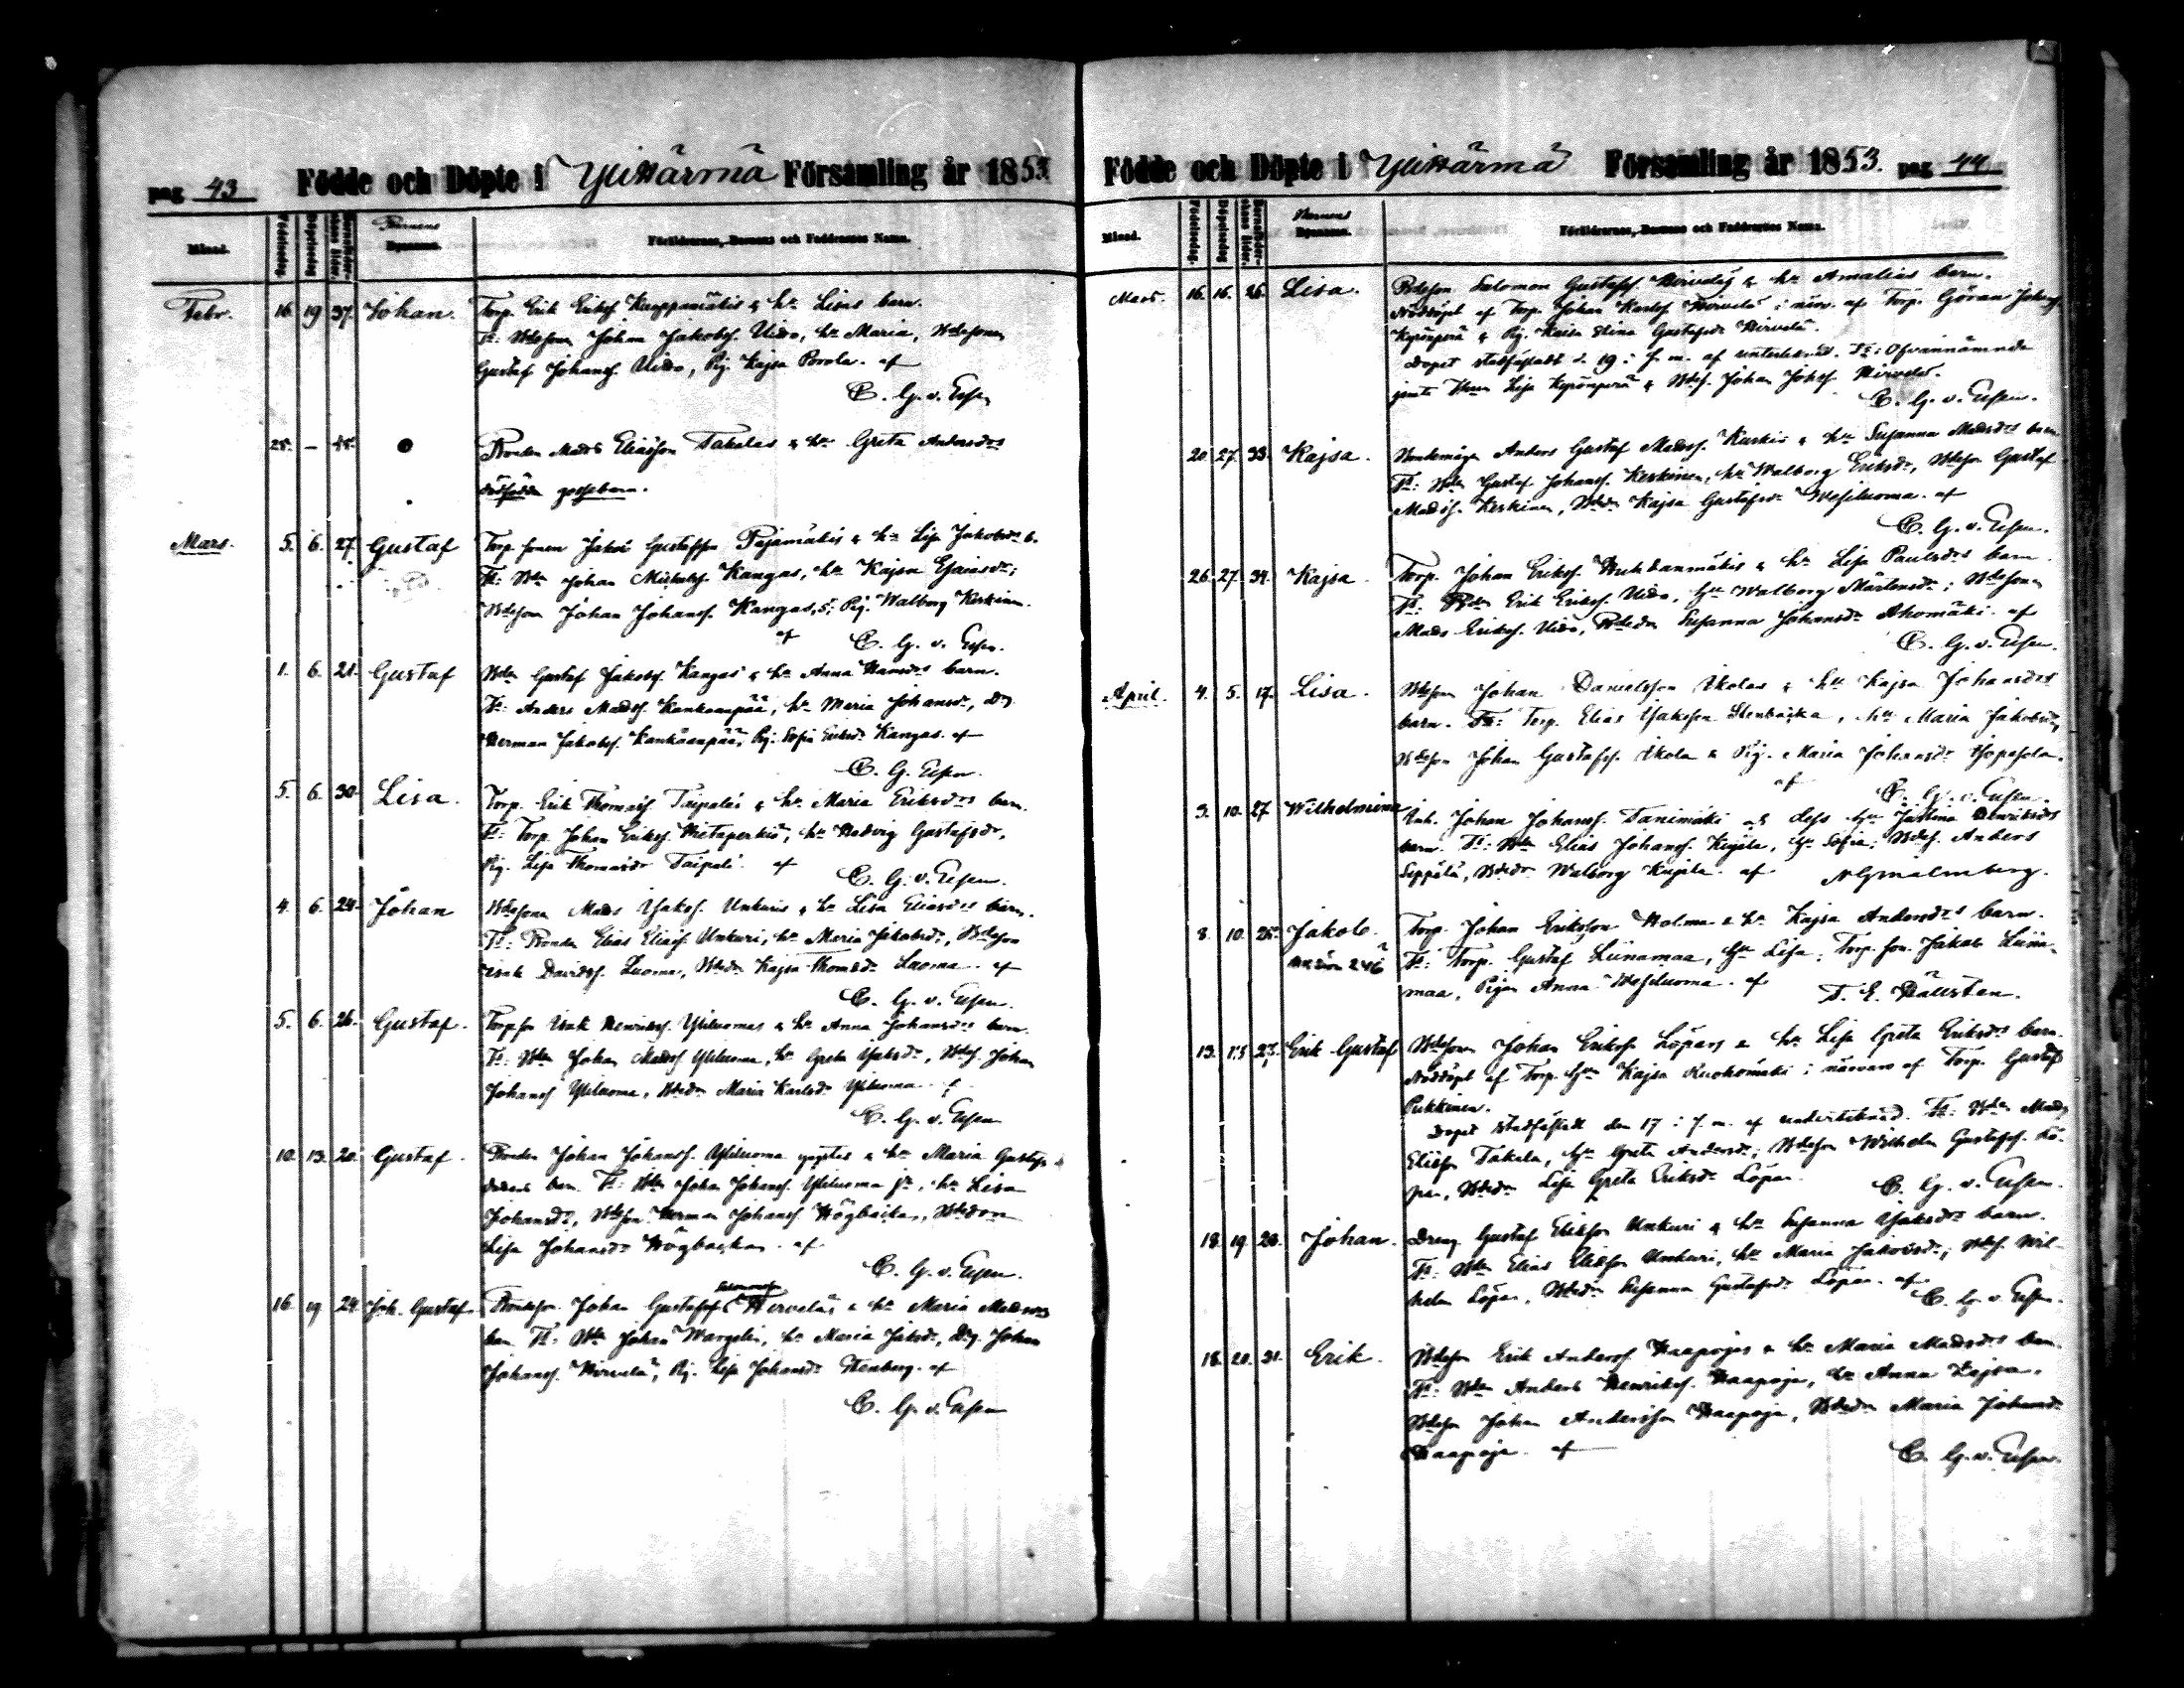 pag 43 Födde och Döpte i Ylihärmä Församling år 1853
Månad. Födelsedag. Döpelsedag Barnaföderskans ålder. Barnens Dopnamn. Föräldrarnes, Barnens och Faddrarnes Namn.
Febr. 16. 19 37. Johan. Torp. Erik Erikss. Karppamäkis & h. Lisas barn.
Ft: Bdesonen Johan Jakobss. Uido, h. Maria, Bdesonen
Gustaf Johanss. Uido, Pig. Kajsa Porola. af
C. G. v. Essen
25. – Bonden Mads Eliasson Takalas & h. Greta Andersdrs
dödfödde gossebarn.
Mars. 5. 6. 27. Gustaf Torp. sonen Jakob Gustafsson Pajamäkis & h. Lisa Jakobsdrs b.
Ft: Bdn Johan Michelss. Kangas, h. Kajsa Esaiasdr;
Bdeson Johan Johanss. Kangas, Pig. Walborg Keskinen.
af C. G. v. Essen.
1. 6. 21. Gustaf Bdn Gustaf Jakobss. Kangas & h. Anna Hansdrs barn.
Ft: Anders Madss. Kankaanpää, h. Maria Johansdr, Dr.
Herman Jakobss. Kankaanpää, Pig. Sofia Eriksdr Kangas. af
C. G. Essen.
5. 6. 30. Lisa. Torp. Erik Thomass. Taipales & h. Maria Eriksdrs barn.
Ft: Torp. Johan Erikss. Hietaperkiö, h. Hedvig Gustafsdr,
Pig. Lisa Thomasdr Taipale. af C. G. v. Essen.
4. 6. 24. Johan Bdesonen Mads Isakss. Unkuris & h. Lisa Eliasdrs barn.
Ft: Bonden Elias Eliass. Unkuri, h. Maria Jakobsdr, Bdeson
Isak Davidss. Luoma, Bdedr Kajsa Thomasdr Luoma. af
C. G. v. Essen.
5. 6. 26. Gustaf. Torpson Isak Henrikss. Ylituomas & h. Anna Johansdrs barn.
Ft: Bdn Johan Madss. Ylituoma, h. Greta Isaksdr, Bdes. Johan
Johanss Ylituoma, Bdedr Maria Karlsdr Ylituoma. af
C. G. v. Essen
10. 13. 20. Gustaf. Bonden Johan Johanss. Ylituoma & h. Maria Gustafs
barn. Ft: Bdn Johan Johanss. Ylituoma jr, h. Lisa
Johansdr, Bdeson Herman Johanss. Högbacka, Bdedotr
Lisa Johansdr Högbacka. af
C. G. v. Essen.
16. 19 24. Joh. Gustaf. Bondeson. Johan Gustafss. Salomonss. Hirvelas & h. Maria Madsdrs
barn. Ft: Bdn Johan Wargelin, h. Maria Jaksdr, Drg. Johan
Johanss. Hirvelä, Pig. Lisa Johansdr Stenberg. af
C. G. v. Essen
Födde och Döpte i Ylihärmä Församling år 1853. pag 44
Månad. Födelsedag. Döpelsedag Barnaföderskans ålder. Barnens Dopnamn. Föräldrarnes, Barnens och Faddrarnes Namn.
Mars. 16. 16. 26. Lisa. Bdeson Salomon Gustafss. Hirveläs & h. Amalias barn.
Nöddöpt af Torp. Johan Karlss. Hirvelä i närv. af Torp. Göran Johanss.
& Pig. Kaisa Stina Gustafsdr Hirvelä.
Dopet stadfästadt d. 19. i f. m. af undertecknad. Ft: Ofvannämnde
jemte Lisa & Bdes. Johan Johss. Hirvelä.
C. G. v. Essen.
20. 27. 33. Kajsa. Bondemågen Anders Gustaf Madss. Kaskis & h. Susanna Madsdrs barn
Ft: Bdn Gustaf Johanss. Keskinen, h. Walborg Eriksdr, Bdeson Gustaf
Madss. Keskinen, Bdedr Kajsa Gustafsdr Wesiluoma. af
C. G. v. Essen.
26. 27. 34. Kajsa. Torp. Johan Erikss. Huhdanmäkis & h. Lisa Paulsdrs barn.
Ft: Bdn Erik Erikss. Uido, h. Walborg Mårtensdr; Bdesonen
Mads Erikss. Uido, Bdedr Susanna Johansdr Ahomäki. af
C. G. v. Essen.
April. 4. 5. 17. Lisa. Bdeson Johan Danielsson Ikolas & h. Kajsa Johansdrs
barn. Ft: Torp. Elias Isaksson Stenbacka, h. Maria Jakobsdr,
Bdeson Johan Gustafss. Ikola & Pig. Maria Johansdr
af C. G. v. Essen.
9. 10. 27 Wilhelmina Inh. Johan Johanss. Tanimäki och dess h. Justina Henriksdrs
barn. Ft: Bdn Elias Johanss. Kujala, h. Sofia; Bdes. Anders
Seppälä, Bdedr Walborg Kujala. af N G Malmberg.
8. 10. 25. Jakob. Torp. Johan Eriksson Holma & h. Kajsa Andersdrs barn.
246 Ft: Torp. Gustaf Liinamaa, h. Lisa; Torp. son. Jakob Liina-
maa, Pigan Anna Wesiluoma. af
13. 17. Erik Gustaf Bdesonen Johan Erikss. Löpars & h. Lisa Greta Eriksdrs barn.
Nöddöpt af Torp. h. Kajsa Ruohomäki i närvaro af Torp. Gustaf
Pukkinen.
Dopet stadfästadt den 17 i f. m. af undertecknad. Ft: Bdn Mads
Eliass. Takala, h. Greta Andersdr; Bdeson Wilhelm Gustafss. Lö-
par, Bdedr Lisa Greta Eriksdr Löpar. C. G. v. Essen.
18. 19. 20. Johan. Dreng Gustaf Eliasson Unkuri & h. Susanna Isaksdrs barn.
Ft: Bdn Elias Eliasson Unkuri, h. Maria Jakobsdr; Bdes. Wil-
helm Löpar, Bdedr Susanna Gustafsdr Löpar. af
C. G. v. Essen.
18. 20. 31. Erik. Bdeson Erik Anderss. Haapojas & h. Maria Madsdrs barn.
Ft: Bdn Anders Henrikss. Haapoja, h. Anna Kajsa.
Bdeson Johan Andersson Haapoja, Bdedr Maria Johansdr
Haapoja. af C. G. v. Essen.